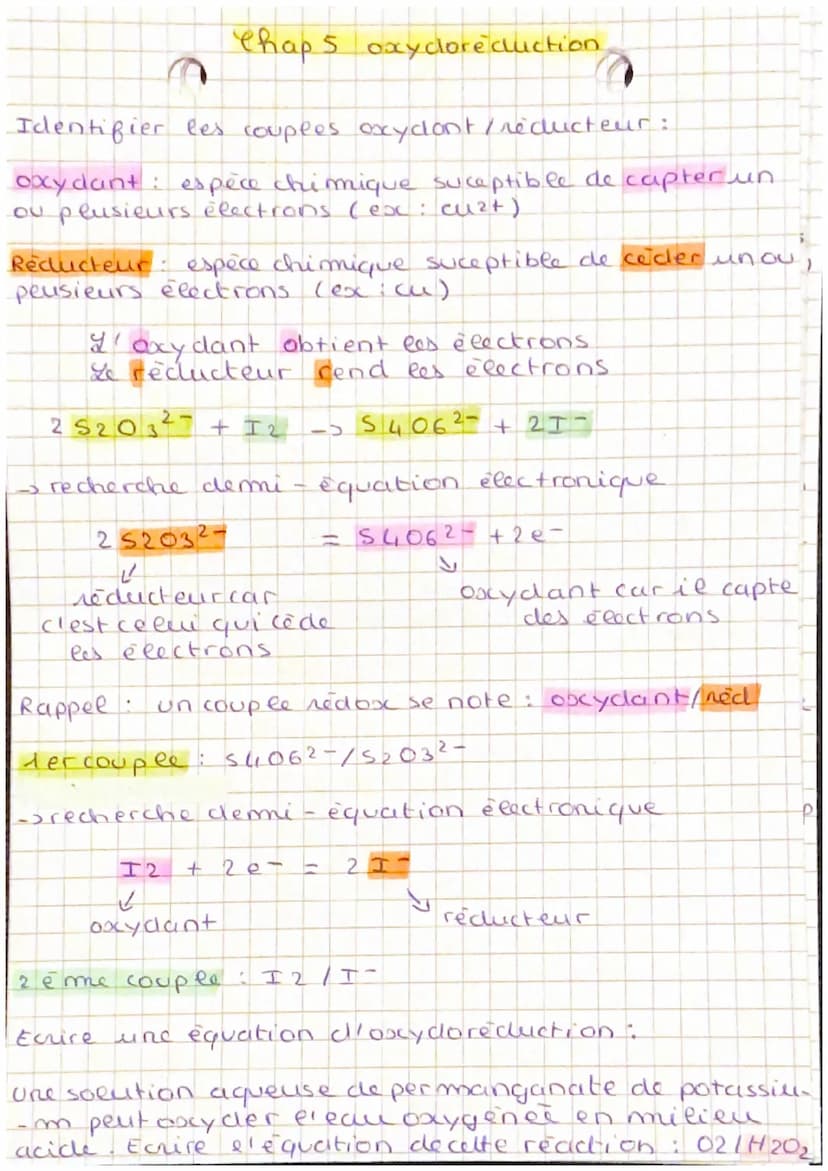 Chap 5 oxydoréduction
Identifier les couples oxydant / réducteur :
oxydant : espèce chimique suceptible de capter un
ou plusieurs électrons (ex : cu2+)
Réducteur : espèce chimique suceptible de céder un ou
plusieurs électrons (ex : cu)
L'oxydant obtient les électrons
Le réducteur rend les électrons
2 S2O3²⁻ + I2 -> S4O6²⁻ + 2I⁻
-> recherche demi-équation électronique
2 S2O3²⁻ = S4O6²⁻ + 2e⁻
réducteur car oxydant car il capte
c'est celui qui cède des électrons
les électrons
Rappel : un couple rédox se note : oxydant/réd
1er couple : S4O6²⁻/S2O3²⁻
-> recherche demi-équation électronique
I2 + 2e⁻ = 2 I⁻
oxydant réducteur
2ème couple : I2 / I⁻
Ecrire une équation d'oxydoréduction :
Une solution aqueuse de permanganate de potassiu-
-m peut oxyder l'eau oxygénée en milieu
acide. Ecrire l'équation de cette réaction : O2/H2O2